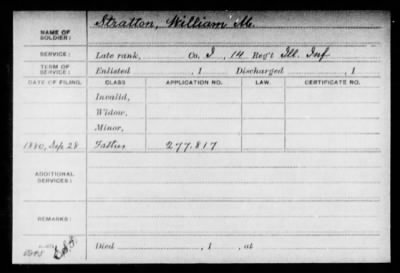 Stratton, William M.
NAME OF SOLDIER:
SERVICE: Late rank, Co. I, 14 Reg't Ill. Inf
TERM OF SERVICE: Enlisted , 1 Discharged , 1
DATE OF FILING. CLASS APPLICATION NO. LAW. CERTIFICATE NO.
Invalid,
Widow,
Minor,
1880, Sep 28 Father 277.817
ADDITIONAL SERVICES:
REMARKS:
Died , 1 , at